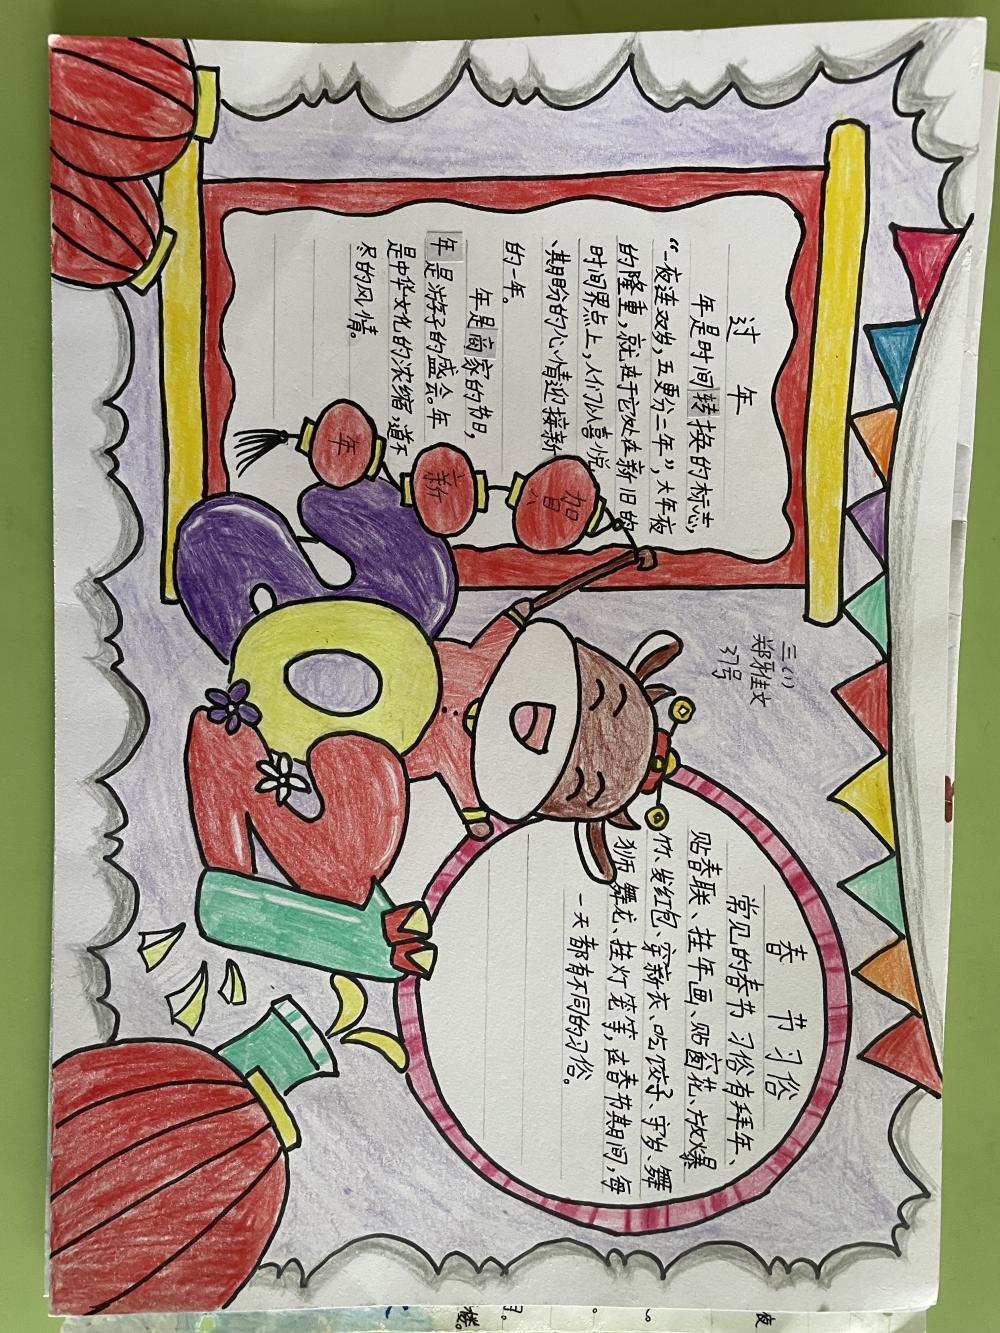 过 年
年是时间转换的标志,
“一夜连双岁,五更分二年”,大年夜
的隆重,就在于它处在新旧的
时间界点上,人们以喜悦
、期盼的心情迎接新
的一年。
年是阖家的节日,
年是游子的盛会。年
是中华文化的浓缩,道不
尽的风情。
贺
新
年
三(1)
郑雅文
37号
2021
春 节 习 俗
常见的春节习俗有拜年、
贴春联、挂年画、贴窗花、放爆
竹、发红包、穿新衣、吃饺子、守岁、舞
狮舞龙、挂灯笼等,在春节期间,每
一天都有不同的习俗。